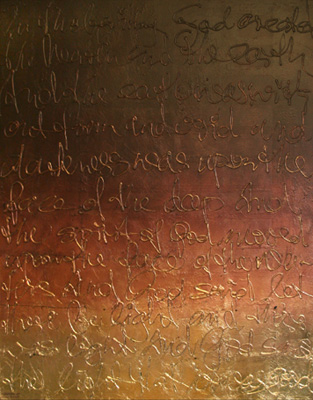 In the beginning God created
the Heaven the earth
And the earth was with
out form and void and
darkness was upon the
face of the deep And
the spirit of God moved
upon the face of the
And God said let
there be light and
was light And God saw
the light